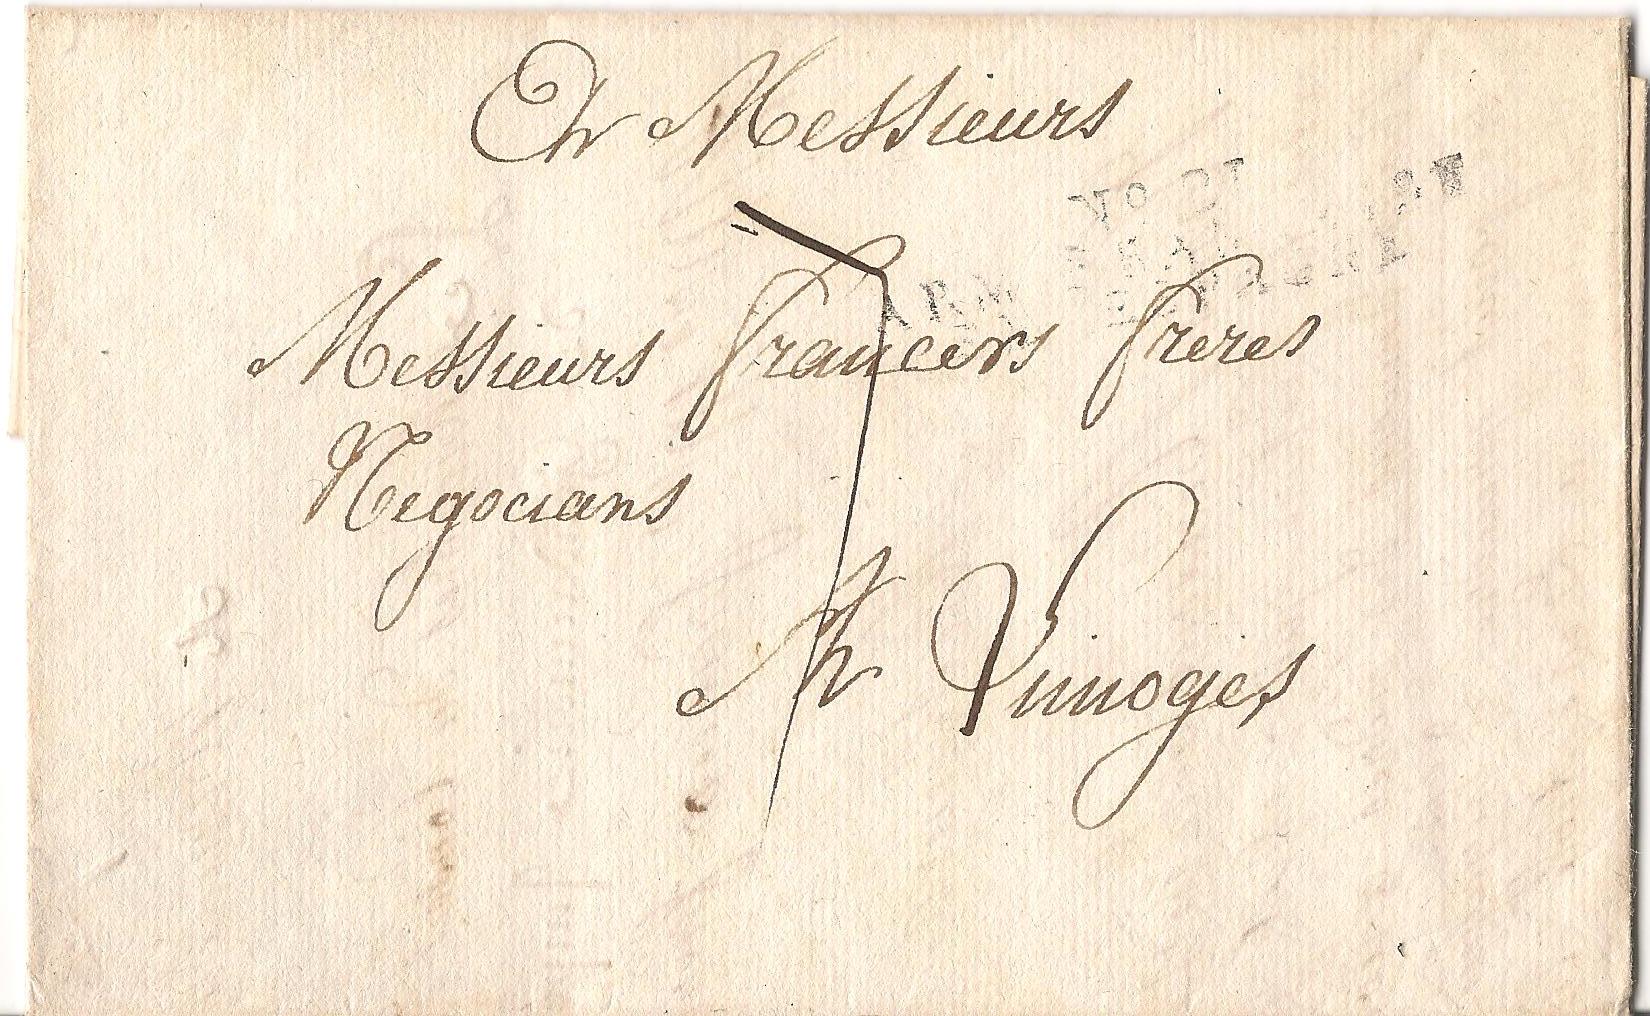 A Messieurs
Messieurs francers freres
Negocians
A Limoges